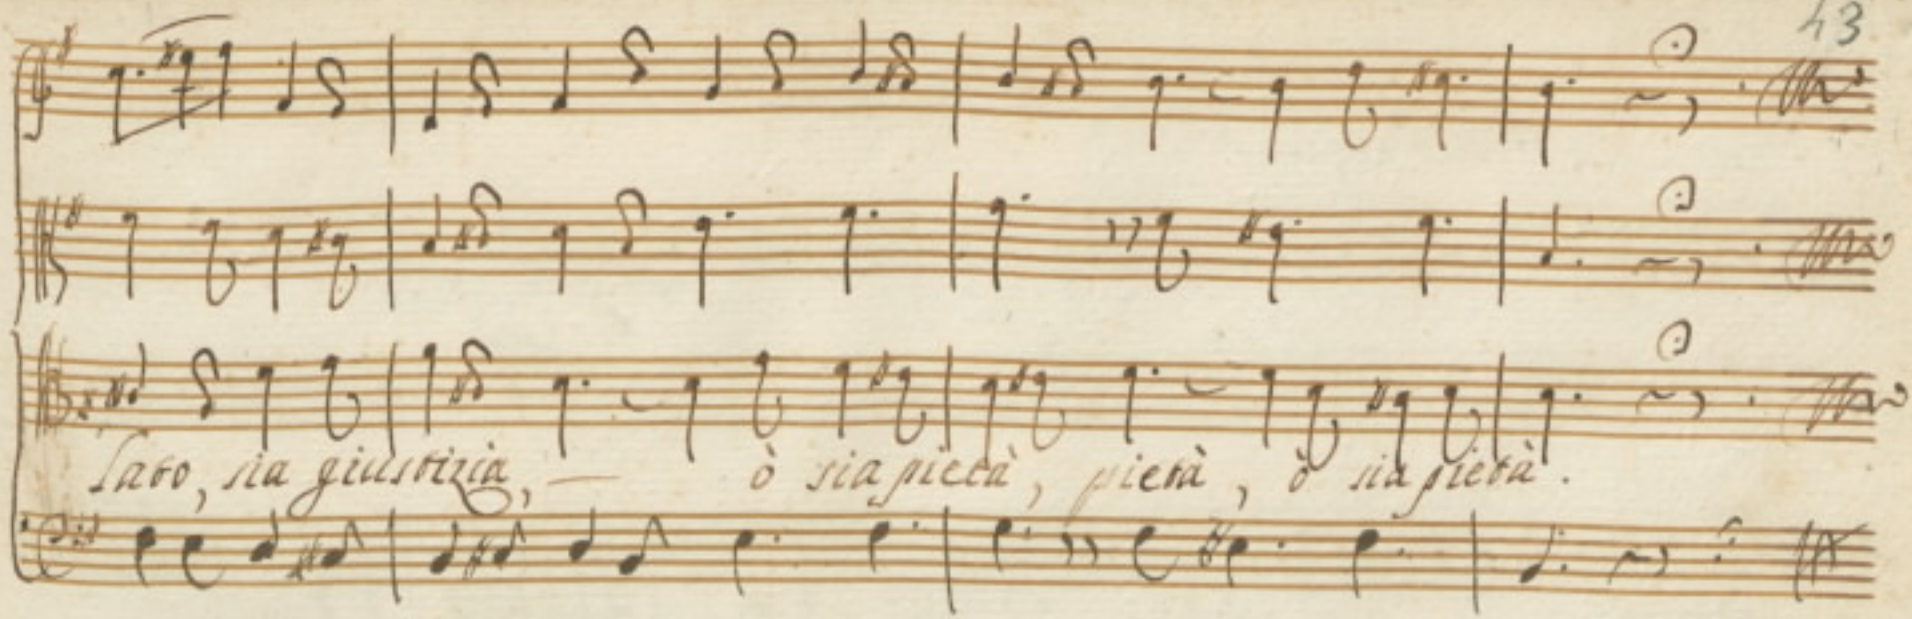 43
lato, sia giustizia, — ò sia pietà, pietà, ò sia pietà.